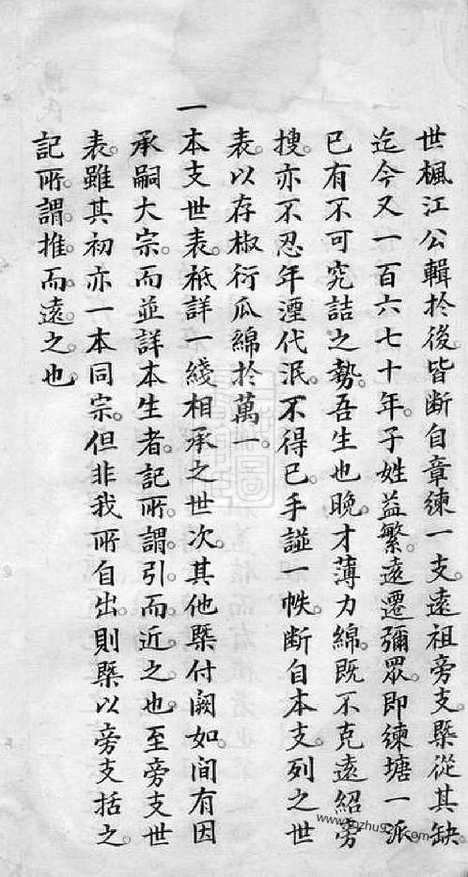 世楓江公輯於後。皆斷自章練一支。遠祖旁支。槩從其缺。
迄今又一百六七十年。子姓益繁。遠遷彌眾。即練塘一派
已有不可究詰之勢。吾生也晚。才薄力綿。既不克遠紹旁
搜。亦不忍年湮代泯。不得已。手謚一帙。斷自本支。列之世
表。以存椒衍瓜綿於萬一。
一本支世表。祗詳一綫相承之世次。其他槩付闕如。間有因
承嗣大宗。而並詳本生者。記所謂引而近之也。至旁支世
表。雖其初亦一本同宗。但非我所自出。則槩以旁支括之。
記所謂推而遠之也